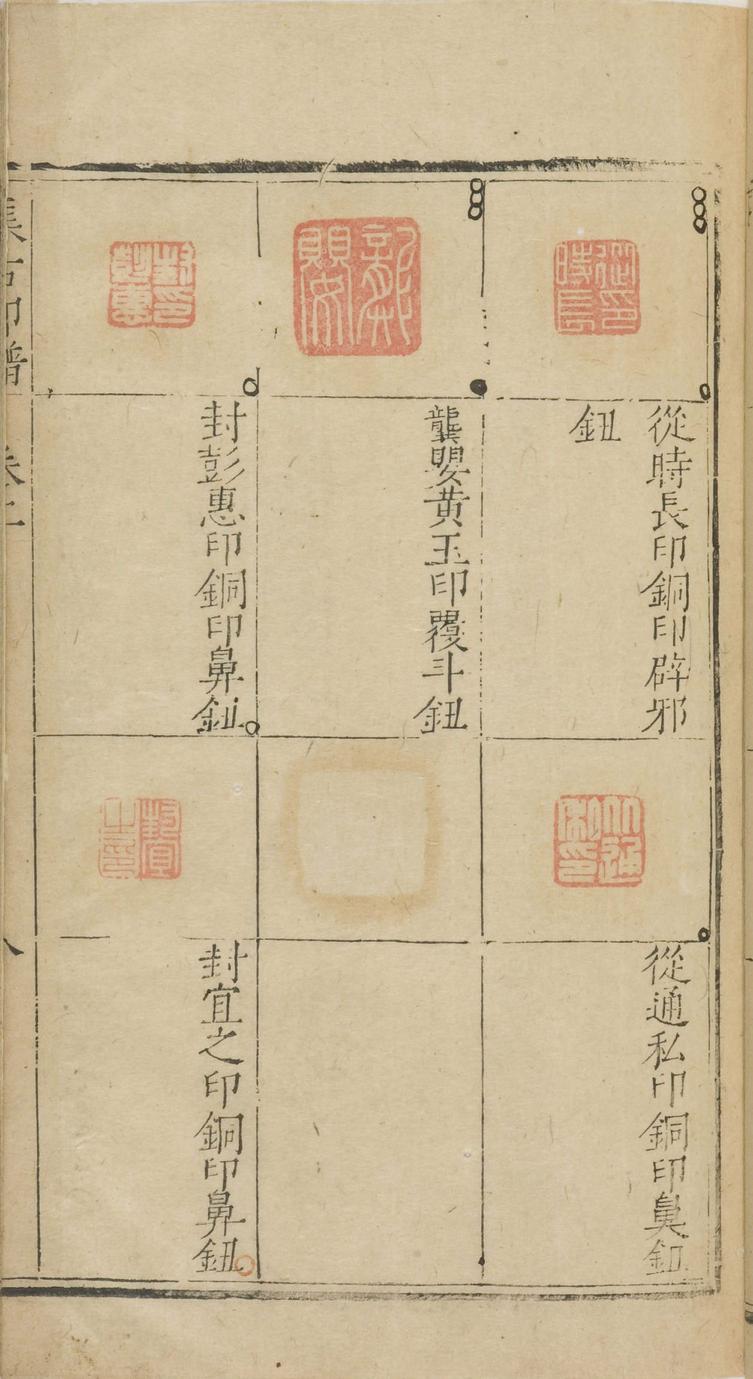 從時長印銅印辟邪
鈕
從通私印銅印鼻鈕
龔嬰黄玉印覆斗鈕
封彭惠印銅印鼻鈕
封宜之印銅印鼻鈕
集古印譜
八